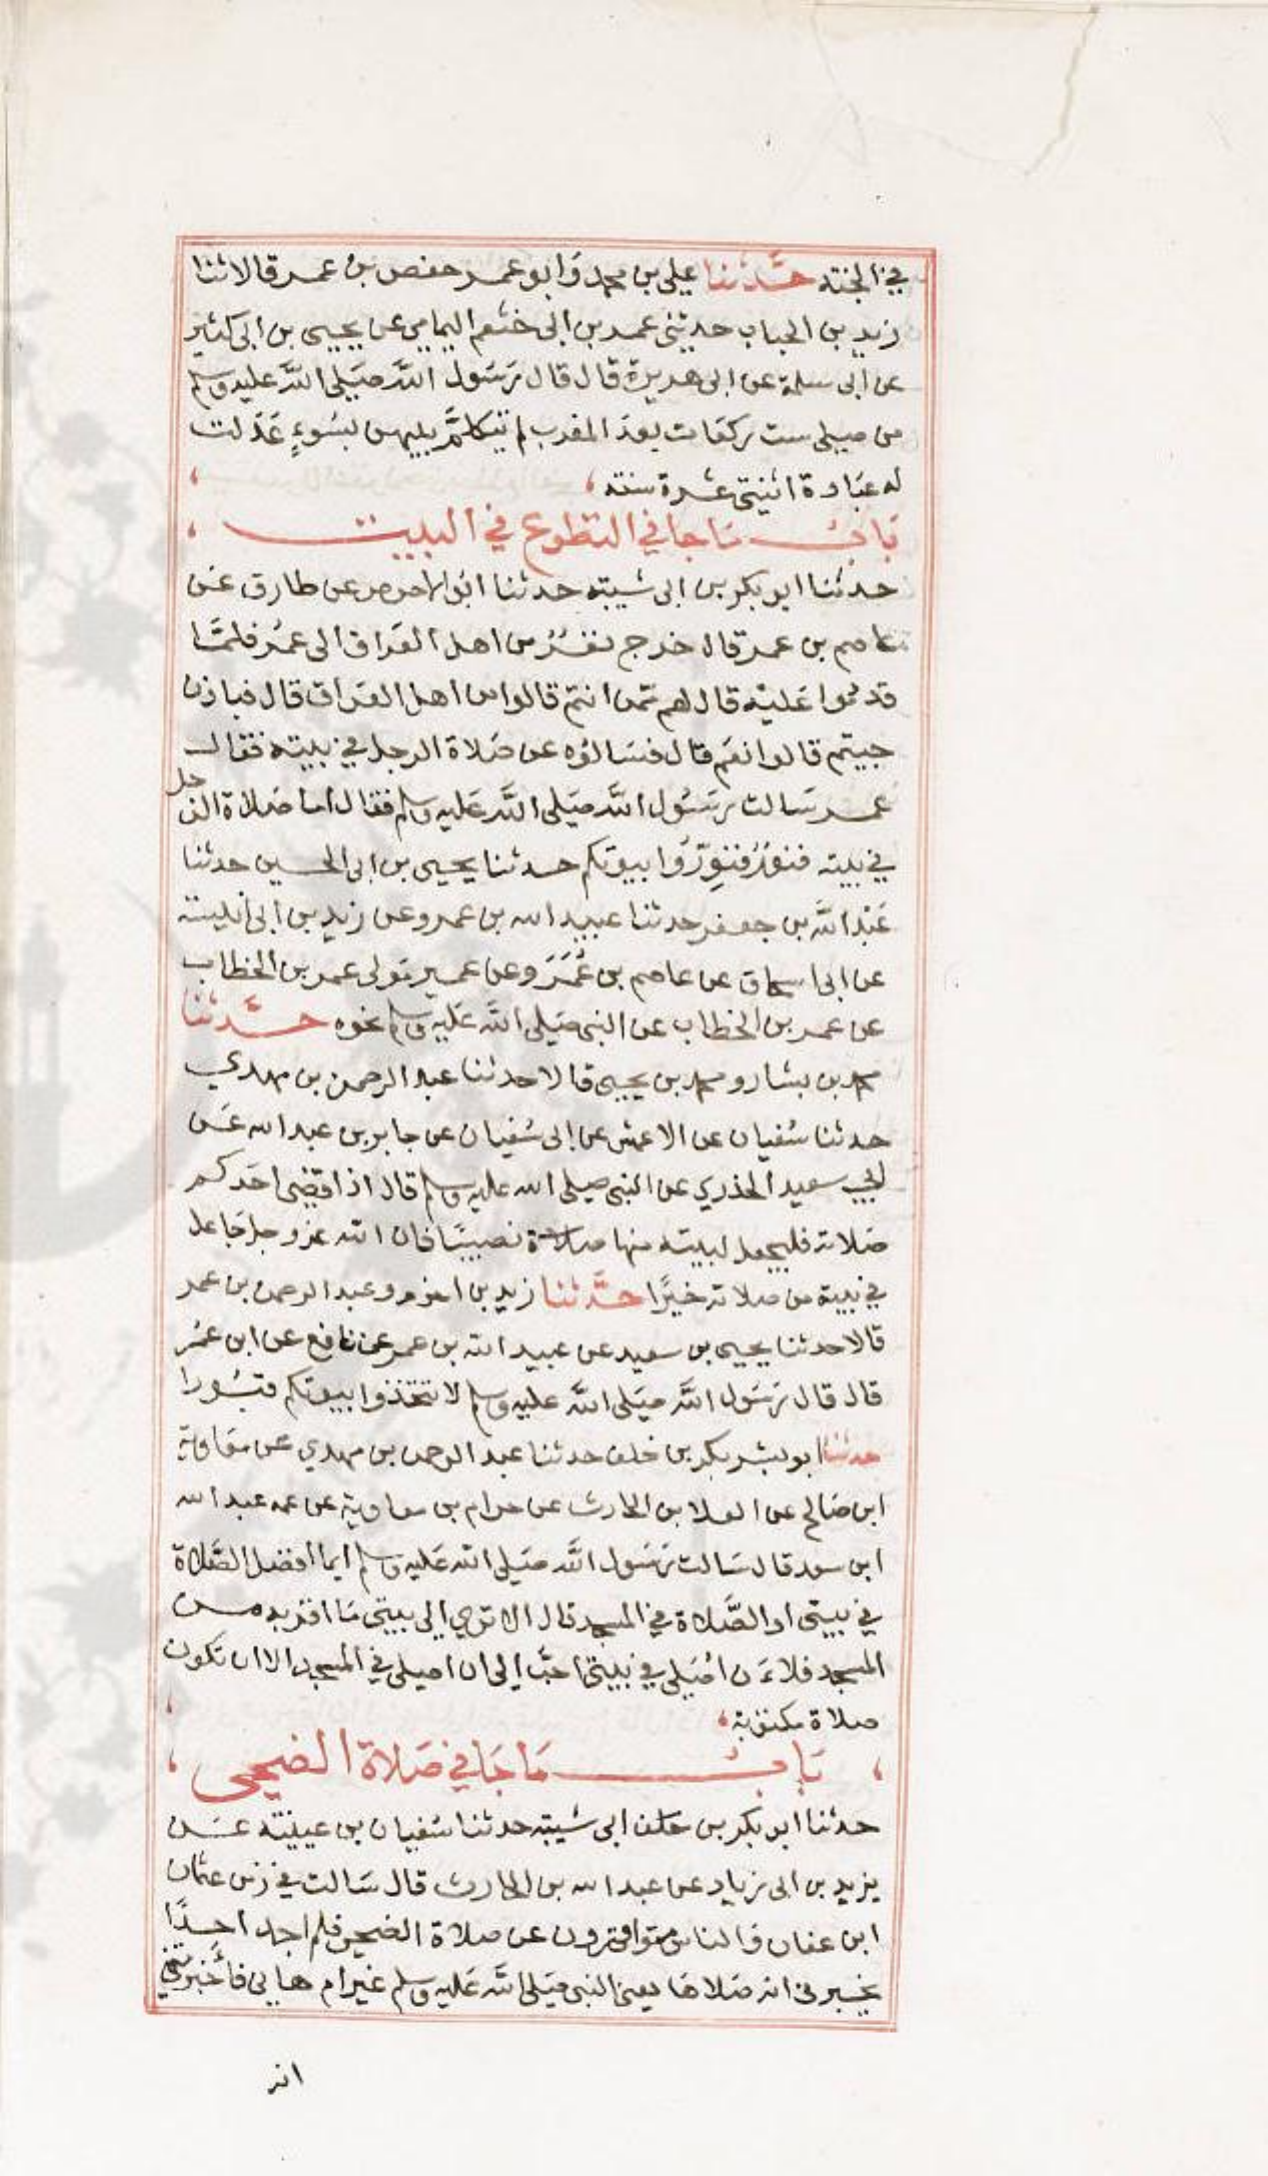 في الجنته حدثنا علي بن محمد وابو عمر حفص بن عمر قالا ثنا
زيد بن الحباب حدثني عمر بن ابي خثعم اليمامي عن يحيى بن ابي كثير
عن ابي سلمة عن ابي هريرة قال قال رسول الله صلى الله عليه وسلم
من صلى ست ركعات بعد المغرب لم يتكلم بينهن بسوء عدلت
له عبادة اثنيتي عشرة سنته
باب ما جا في التطوع في البيت
حدثنا ابو بكر بن ابي شيبة حدثنا ابو الاحوص عن طارق عن
عاصم بن عمر قال خرج نفر من اهل العراق الى عمر فلما
قدموا عليه قال لهم ممن انتم قالوا من اهل العراق قال فباذن
جيتم قالوا نعم قال فسالوه عن صلاة الرجل في بيته فقال
عمر سالت رسول الله صلى الله عليه وسلم فقال اما صلاة الرجل
في بيته فنور فنوروا بيوتكم حدثنا يحيى بن ابي الحسين حدثنا
عبد الله بن جعفر حدثنا عبيد الله بن عمرو عن زيد بن ابي انيسة
عن ابي اسحاق عن عاصم بن عمر وعن عمير مولى عمر بن الخطاب
عن عمر بن الخطاب عن النبي صلى الله عليه وسلم نحوه حدثنا
محمد بن بشار ومحمد بن يحيى قالا حدثنا عبد الرحمن بن مهدي
حدثنا سفيان عن الاعمش عن ابي سفيان عن جابر بن عبد الله عن
ابي سعيد الخدري عن النبي صلى الله عليه وسلم قال اذا قضى احدكم
صلاته فليجعل لبيته منها صلاة نصيبا فان الله عز وجل جاعل
في بيته من صلاته خيرا حدثنا زيد بن اخزم وعبد الرحمن بن عمر
قالا حدثنا يحيى بن سعيد عن عبيد الله بن عمر عن نافع عن ابن عمر
قال قال رسول الله صلى الله عليه وسلم لا تتخذوا بيوتكم قبورا
حدثنا ابو بشر بكر بن خلف حدثنا عبد الرحمن بن مهدي عن معاوية
ابن صالح عن العلا بن الحارث عن حرام بن معاوية عن عمه عبد الله
ابن سعد قال سالت رسول الله صلى الله عليه وسلم ايما افضل الصلاة
في بيتي او الصلاة في المسجد قال الا ترى الى بيتي ما اقربه من
المسجد فلاءن اصلي في بيتي احب الي ان اصلي في المسجد الا ان تكون
صلاة مكتوبة
باب ما جا في صلاة الضحى
حدثنا ابو بكر بن ابي شيبة حدثنا سفيان بن عيينة عن
يزيد بن ابي زياد عن عبد الله بن الحارث قال سالت في زمن عثمان
ابن عفان والناس متوافرون عن صلاة الضحى فلم اجد احدا
يخبرني انه صلاها يعني النبي صلى الله عليه وسلم غير ام هاني فأخبرتني
انه